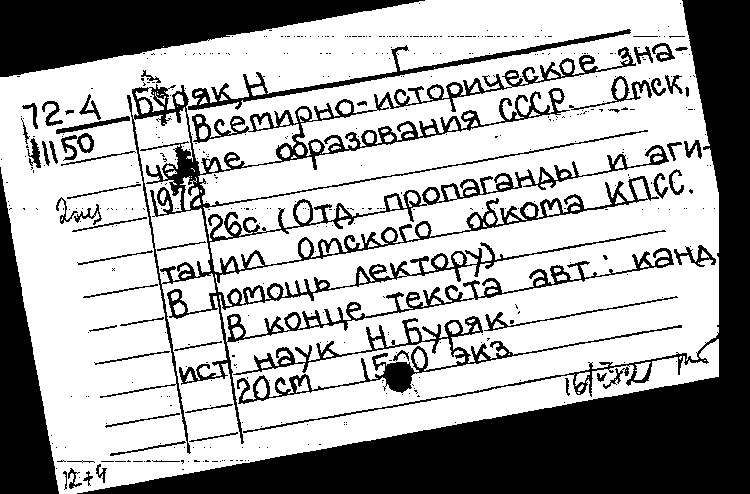 Г
72-4 Буряк, Н
11150 Всемирно-историческое зна-
чение образования СССР. Омск,
1972.
26с. (Отд. пропаганды и аги-
тации Омского обкома КПСС.
В помощь лектору).
В конце текста авт.: канд.
ист. наук Н. Буряк.
20см. 1500 экз
72+4